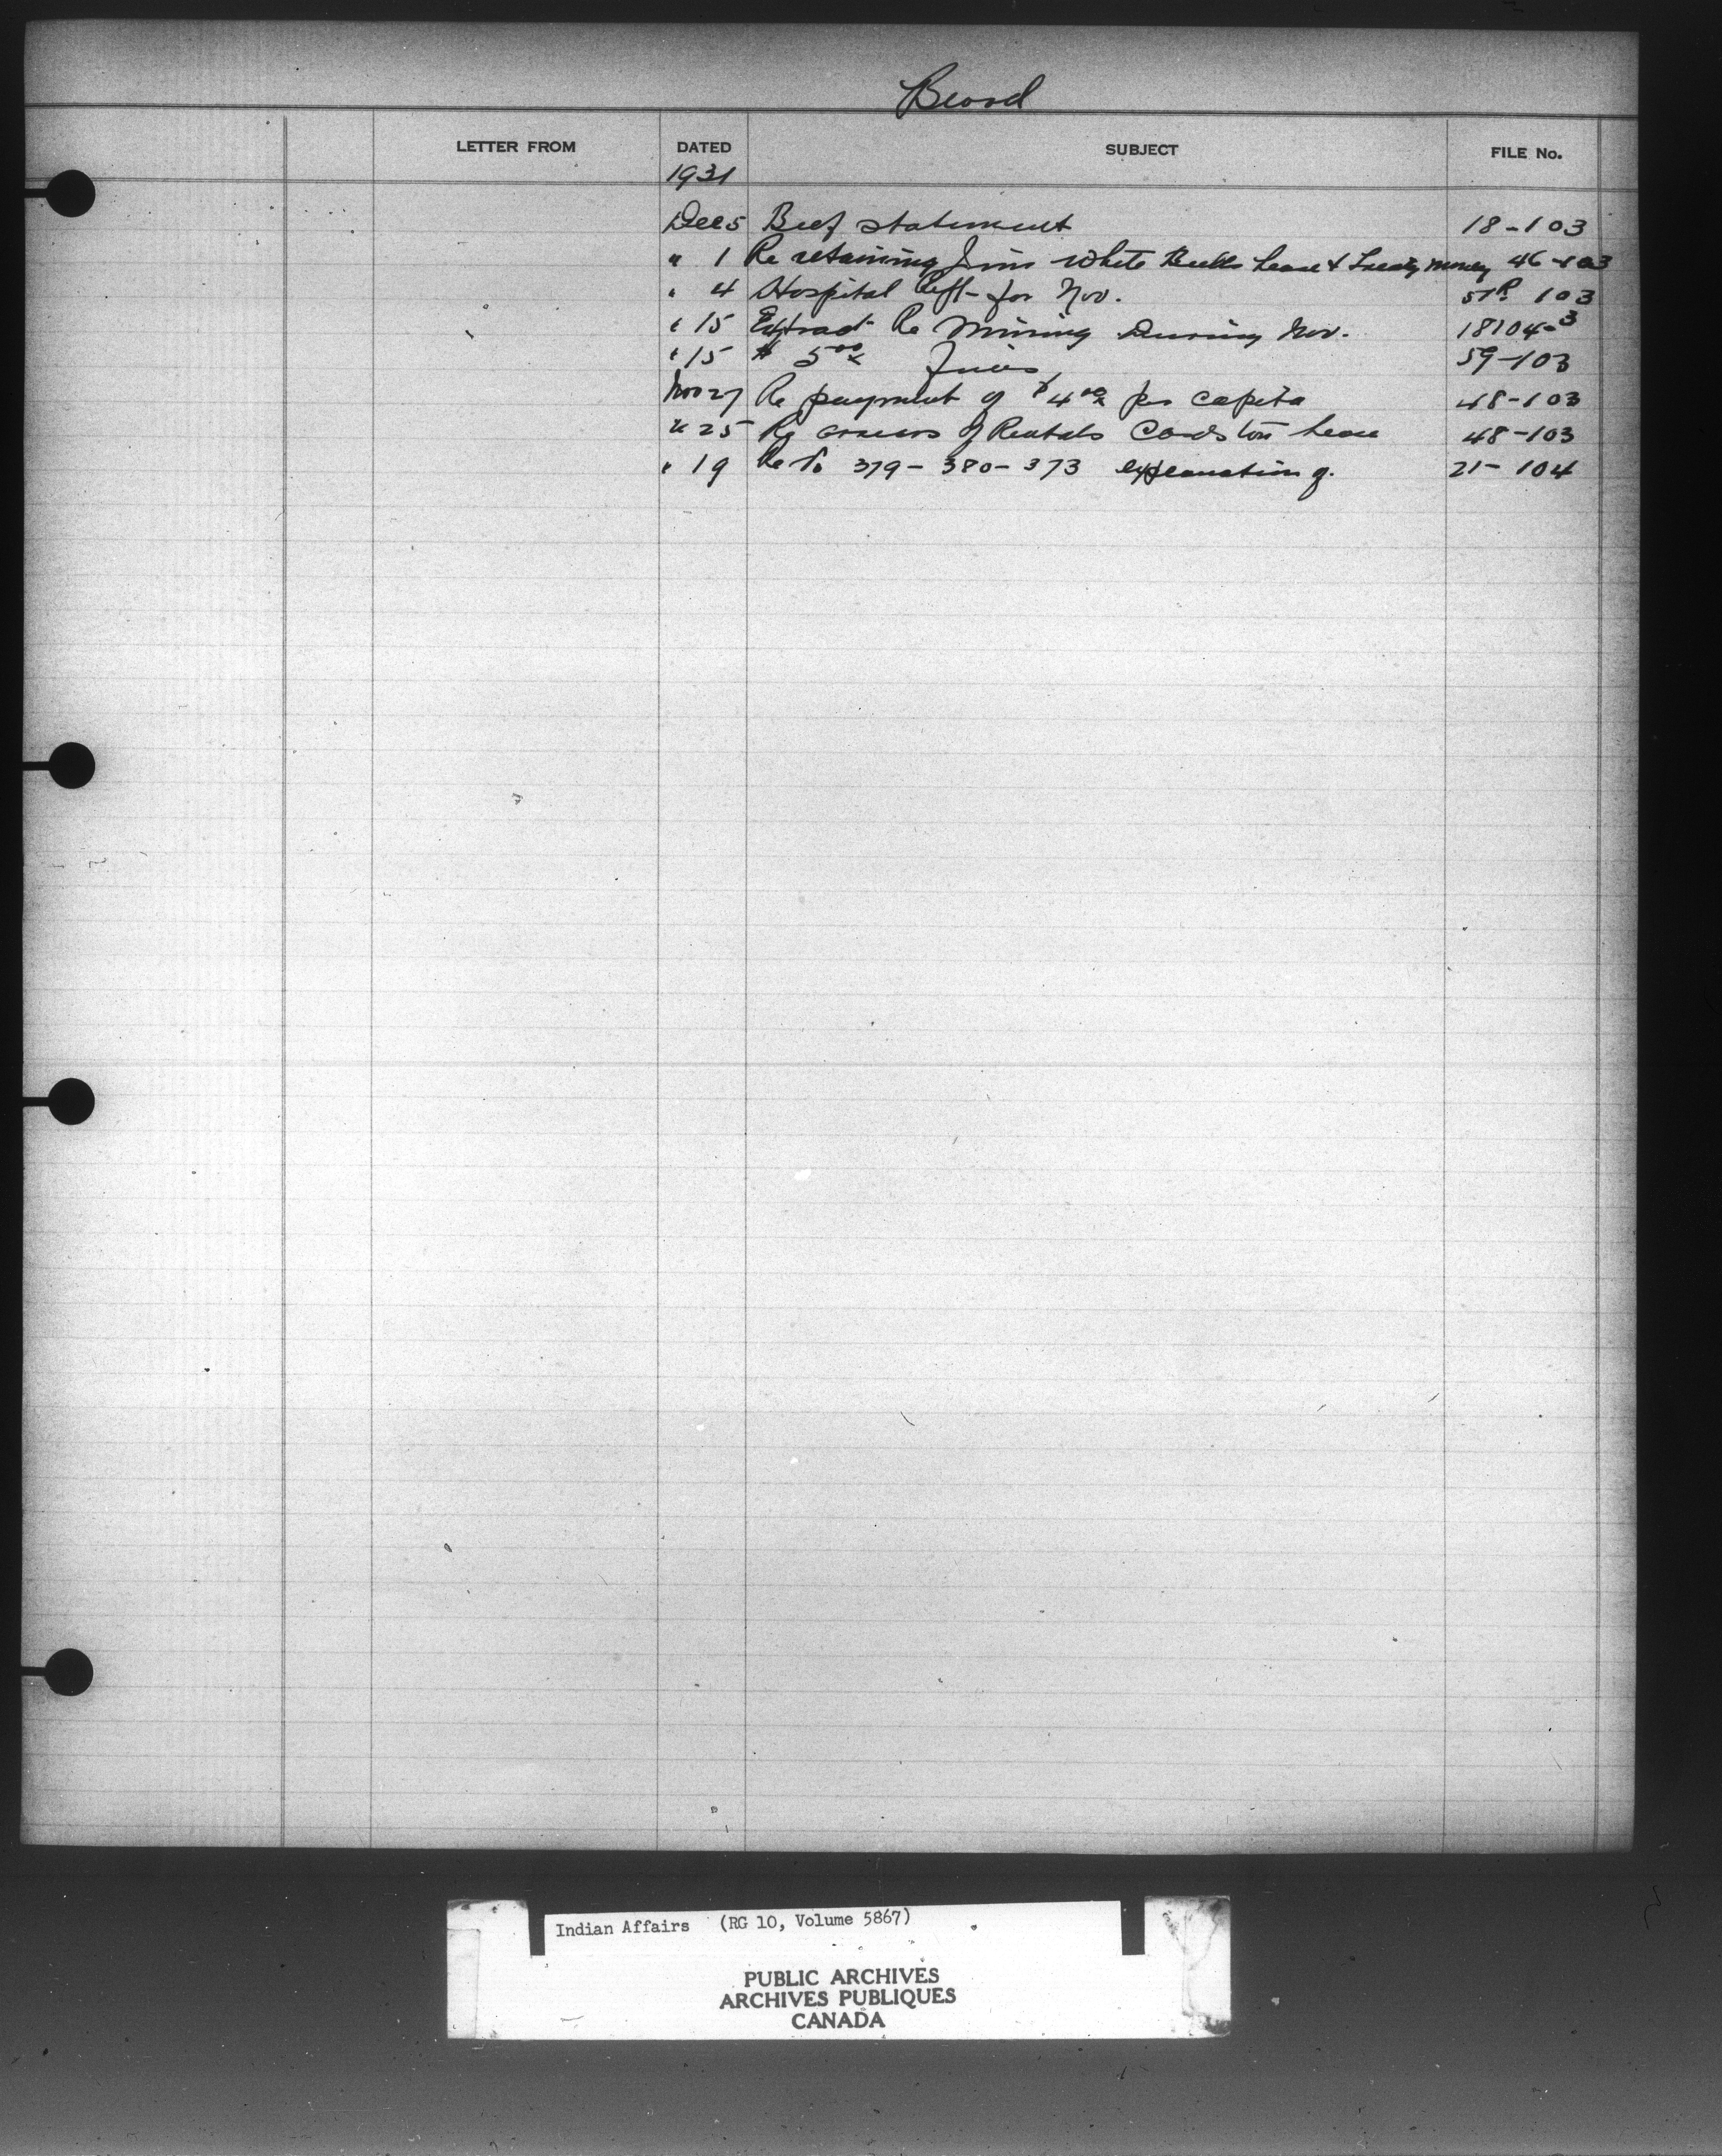 Blood
LETTER FROM DATED SUBJECT FILE No.
1931
Dec 5 Beef statement 18-103
" 1 Re retaining Jim White Bulls Lease & Treaty money 46-103
" 4 Hospital Rept- for Nov. 51R 103
" 15 Extract Re Mining During Nov. 18104-3
" 15 $ 5.00 Fines 59-103
Nov 27 Re payment of $4.00 per capita 48-103
" 25 Re arrears of Rentals Cardston Lease 48-103
" 19 Re 379-380-373 explanation of. 21-104
Indian Affairs (RG 10, Volume 5867)
PUBLIC ARCHIVES
ARCHIVES PUBLIQUES
CANADA